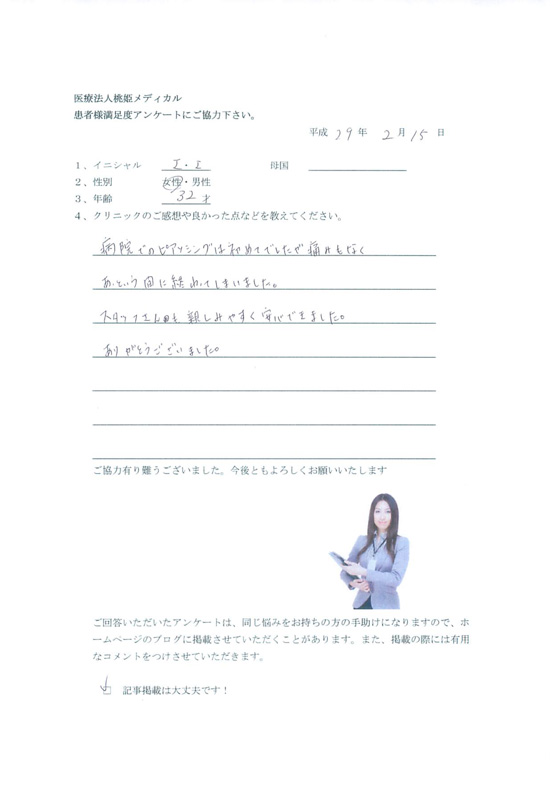 医療法人桃姫メディカル
患者様満足度アンケートにご協力下さい。
平成 29 年 2 月 15 日
1、イニシャル I・I 母国
2、性別 女性・男性
3、年齢 32才
4、クリニックのご感想や良かった点などを教えてください。
病院でのピアッシングは初めてでしたが痛みもなく
あっという間に終わってしまいました。
スタッフさんも親しみやすく安心できました。
ありがとうございました。
ご協力有り難うございました。今後ともよろしくお願いいたします
ご回答いただいたアンケートは、同じ悩みをお持ちの方の手助けになりますので、ホ
ームページのブログに掲載させていただくことがあります。また、掲載の際には有用
なコメントをつけさせていただきます。
☑ 記事掲載は大丈夫です！